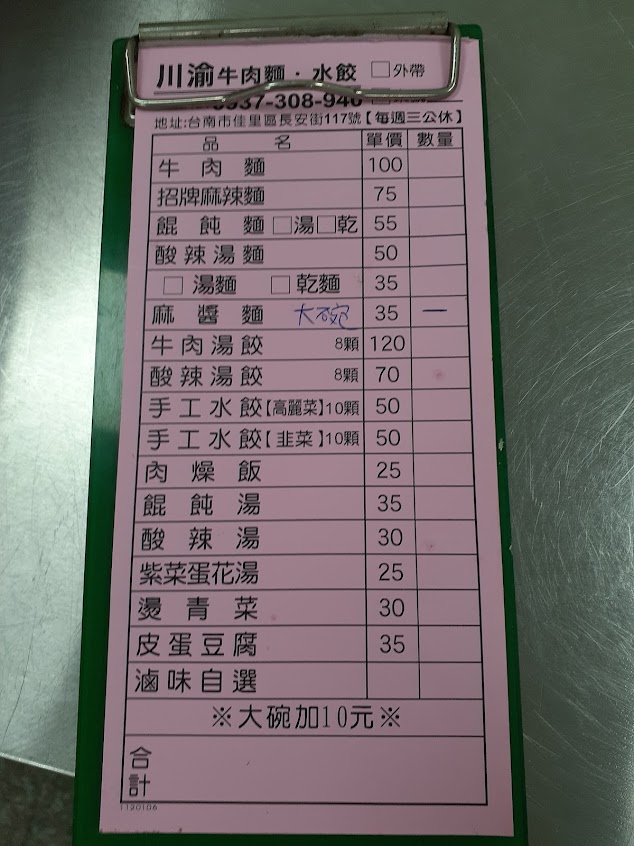 川渝牛肉麵·水餃 □外帶
0937-308-946
地址:台南市佳里區長安街117號【每週三公休】
品名 單價 數量
牛肉麵 100
招牌麻辣麵 75
餛飩麵 □湯□乾 55
酸辣湯麵 50
□湯麵 □乾麵 35
麻醬麵 大碗 35 一
牛肉湯餃 8顆 120
酸辣湯餃 8顆 70
手工水餃【高麗菜】10顆 50
手工水餃【韭菜】10顆 50
肉燥飯 25
餛飩湯 35
酸辣湯 30
紫菜蛋花湯 25
燙青菜 30
皮蛋豆腐 35
滷味自選
※大碗加10元※
合計
1120106